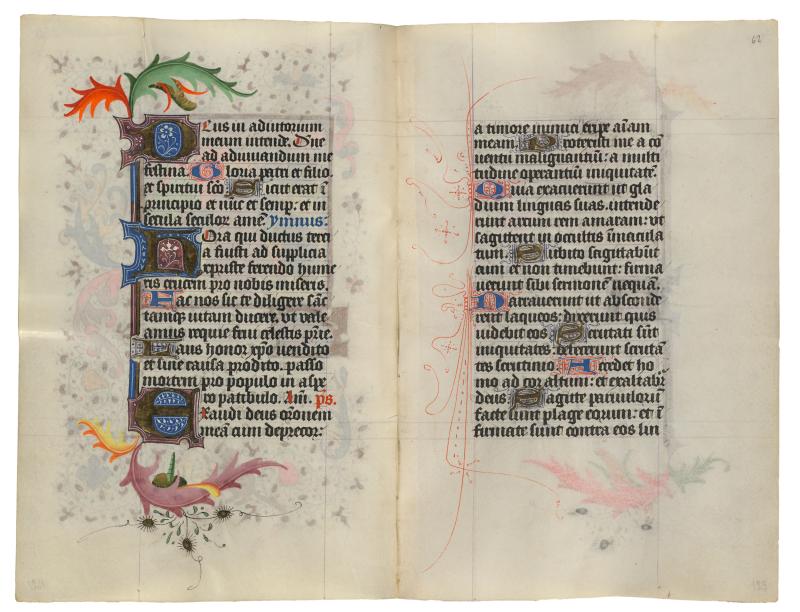 Deus in adiutorium
meum intende. Dn̄e
ad adiuuandum me
festina. Gloria patri et filio.
et spiritui sc̄o. Sicut erat ī
principio et nūc et semp̄: et in
secula seculoꝝ amē. ymnus:
Hora qui ductus terci
a fuisti ad supplicia
xpriste ferendo hume
ris crucem pro nobis miseris.
Fac nos sic te diligere sāc
tamqꝫ uitam ducere. ut vale
amus requie frui celestis pr̄ie.
Laus honor xp̄o uendito
et sine causa prodito. passo
mortem pro populo in aspe
ro patibulo. Am̄. p̄s.
Exaudi deus or̄onem
meā cum deprecor:
62
a timore inimici eripe aīam
meam. Protexisti me a cō
uentu malignantiū: a multi
tudine operantiū iniquitatē.
Quia exacuerunt ut gla
dium linguas suas. intende
runt arcum rem amaram: ut
sagittent in occultis īmacula
tum. Subito sagittabūt
eum et non timebunt: firma
uerunt sibi sermonē nequā.
Narrauerunt ut absconde
rent laqueos: dixerunt quis
uidebit eos. Scrutati sūt
iniquitates: defecerunt scrutā
tes scrutinio. Accedet ho
mo ad cor altum: et exaltabr̄
deus. Sagitte paruulorū
facte sunt plage eorum: et ī
firmate sunt contra eos lin